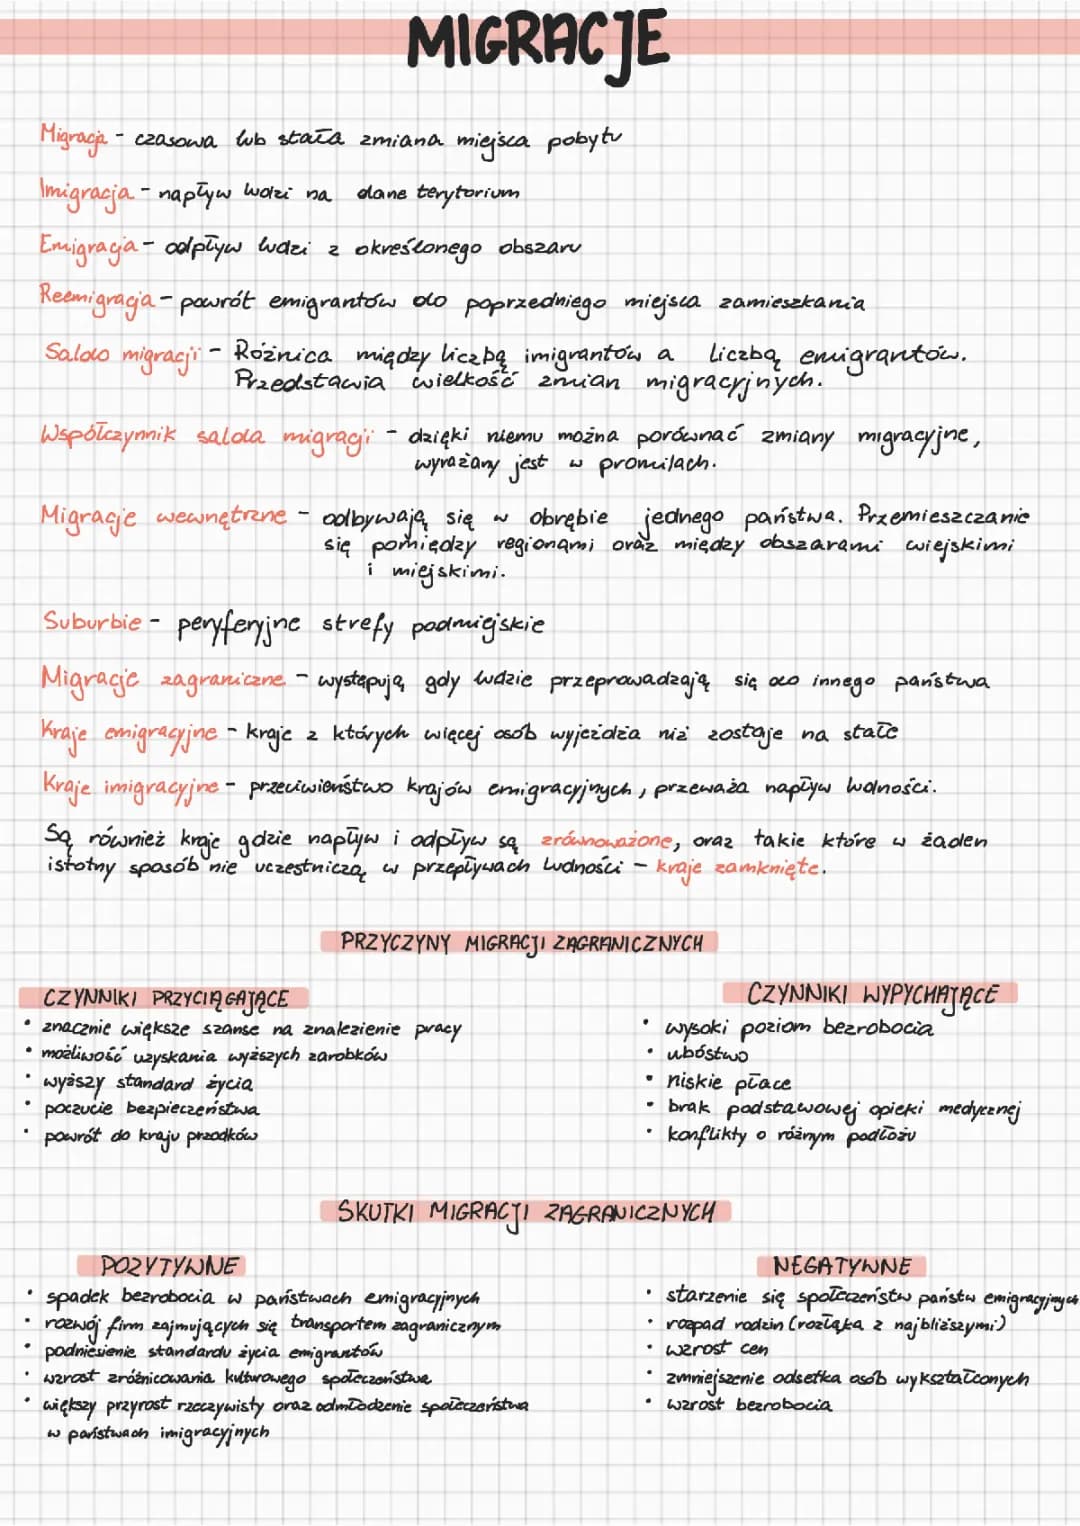 MIGRACJE
Migracja - czasowa lub stała zmiana miejsca pobytu
Imigracja - napływ ludzi na dane terytorium
Emigracja - odpływ ludzi z określonego obszaru
Reemigracja - powrót emigrantów do poprzedniego miejsca zamieszkania
Saldo migracji - Różnica między liczbą imigrantów a liczbą emigrantów.
Przedstawia wielkość zmian migracyjnych.
Współczynnik salda migracji - dzięki niemu można porównać zmiany migracyjne,
wyrażany jest w promilach.
Migracje wewnętrzne - odbywają się w obrębie jednego państwa. Przemieszczanie
się pomiędzy regionami oraz między obszarami wiejskimi
i miejskimi.
Suburbie - peryferyjne strefy podmiejskie
Migracje zagraniczne - występują gdy ludzie przeprowadzają się do innego państwa
Kraje emigracyjne - kraje z których więcej osób wyjeżdża niż zostaje na stałe
Kraje imigracyjne - przeciwieństwo krajów emigracyjnych, przeważa napływ ludności.
Są również kraje gdzie napływ i odpływ są zrównoważone, oraz takie które w żaden
istotny sposób nie uczestniczą w przepływach ludności - kraje zamknięte.
PRZYCZYNY MIGRACJI ZAGRANICZNYCH
CZYNNIKI PRZYCIĄGAJĄCE
• znacznie większe szanse na znalezienie pracy
• możliwość uzyskania wyższych zarobków
• wyższy standard życia
• poczucie bezpieczeństwa
• powrót do kraju przodków
CZYNNIKI WYPYCHAJĄCE
• wysoki poziom bezrobocia
• ubóstwo
• niskie płace
• brak podstawowej opieki medycznej
• konflikty o różnym podłożu
SKUTKI MIGRACJI ZAGRANICZNYCH
POZYTYWNE
• spadek bezrobocia w państwach emigracyjnych
• rozwój firm zajmujących się transportem zagranicznym
• podniesienie standardu życia emigrantów
• wzrost zróżnicowania kulturowego społeczeństwa
• większy przyrost rzeczywisty oraz odmłodzenie społeczeństwa
w państwach imigracyjnych
NEGATYWNE
• starzenie się społeczeństw państw emigracyjnych
• rozpad rodzin (rozłąka z najbliższymi)
• wzrost cen
• zmniejszenie odsetka osób wykształconych
• wzrost bezrobocia